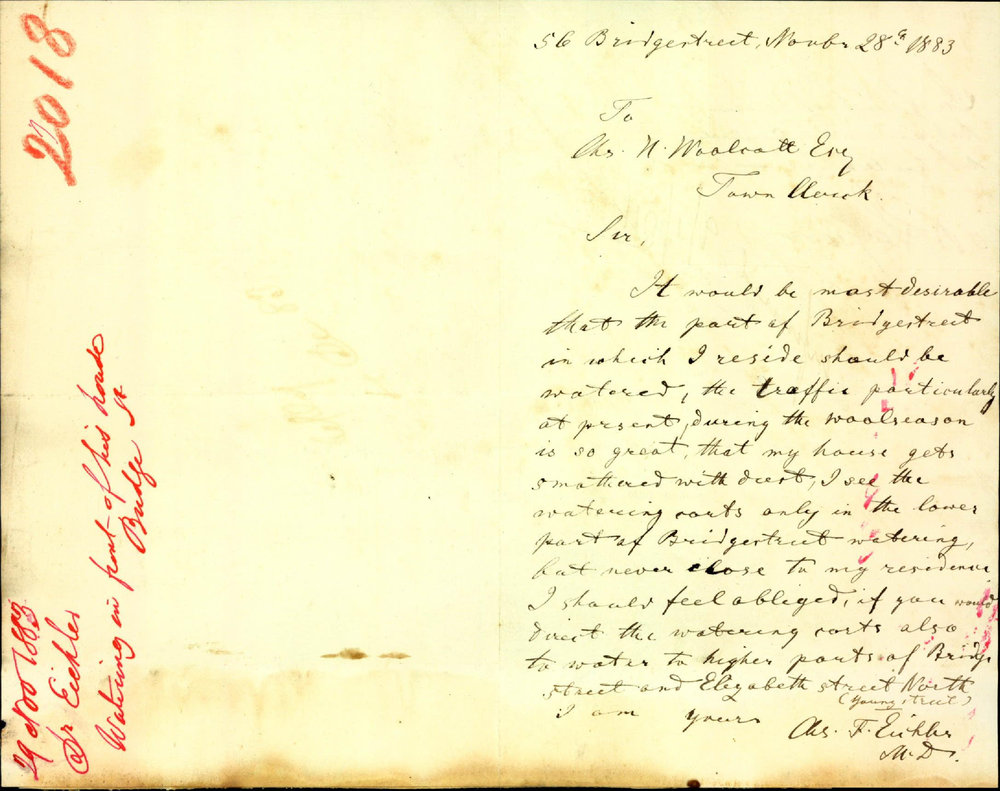 2018
29 Nov 1883
Dr Eichler
Watering in front of his house
Bridge St
56 Bridgestreet, Novbr 28th 1883
To
Chs. H. Woolcott Esq
Town Clerck.
Sir,
It would be most desirable
that the part of Bridgestreet
in which I reside should be
watered, the traffic particularly
at present, during the woolseason
is so great, that my house gets
smothered with dust, I see the
watering carts only in the lower
part of Bridgestreet watering,
but never close to my residence
I should feel obliged, if you would
direct the watering carts also
to water to higher parts of Bridge
street and Elizabeth street North
(Young street)
I am yours
Chs. F. Eichler
M.D.